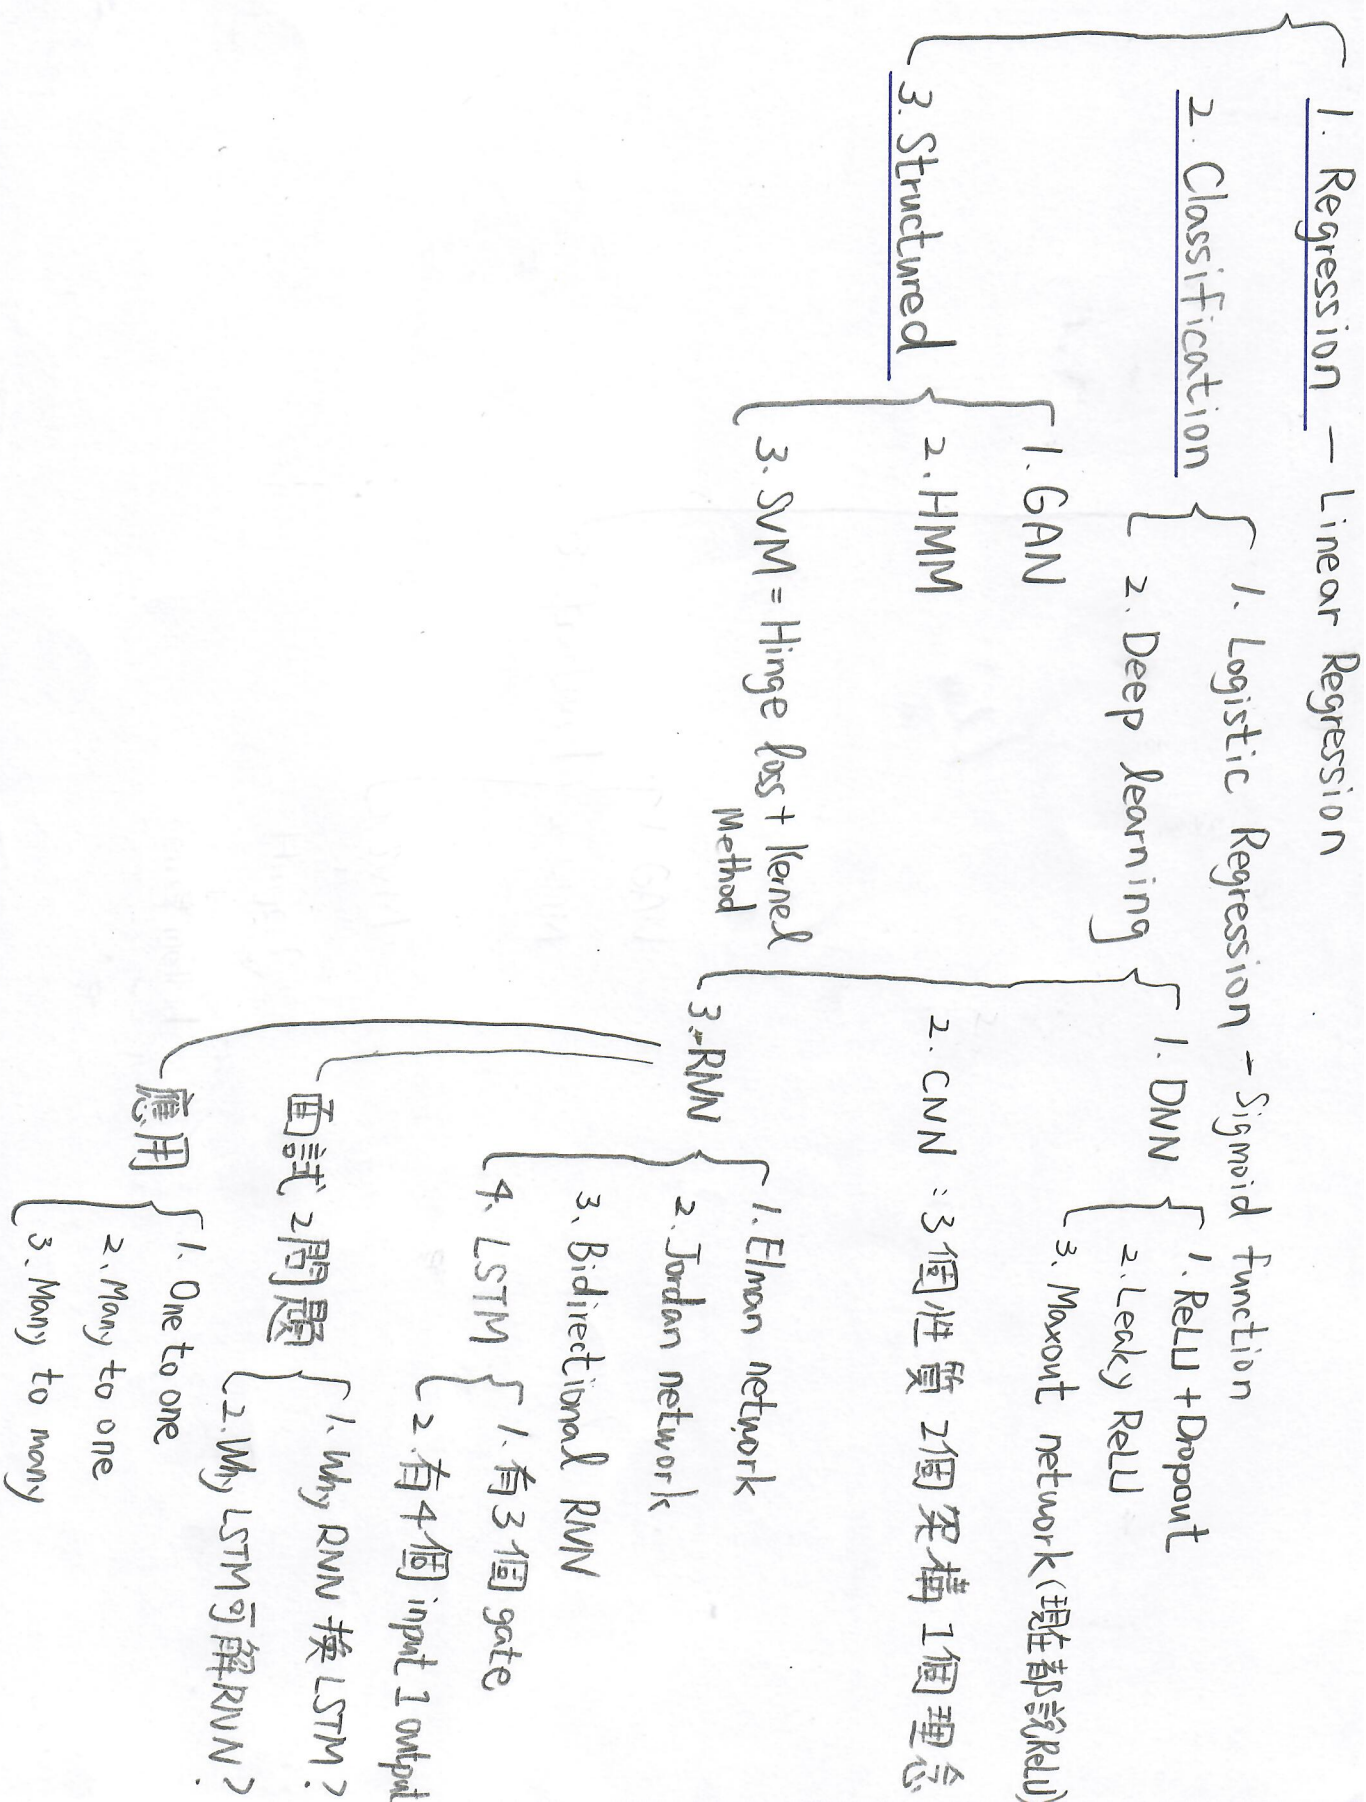 1. Regression — Linear Regression
2. Classification
1. Logistic Regression - Sigmoid function
2. Deep learning
1. DNN
1. ReLU + Dropout
2. Leaky ReLU
3. Maxout network (現在都說ReLU)
2. CNN : 3個性質 2個架構 1個理念
3. RNN
1. Elman network
2. Jordan network
3. Bidirectional RNN
4. LSTM
1. 有3個gate
2. 有4個input 1 output
面試2問題
1. Why RNN 換 LSTM?
2. Why LSTM可解RNN?
應用
1. One to one
2. Many to one
3. Many to many
3. Structured
1. GAN
2. HMM
3. SVM = Hinge loss + Kernel
Method